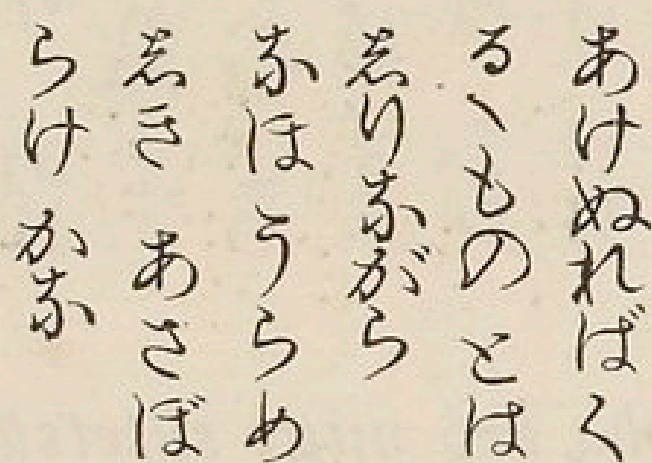 あけぬればく
るゝものとは
志りながら
なほうらめ
志きあさぼ
らけかな